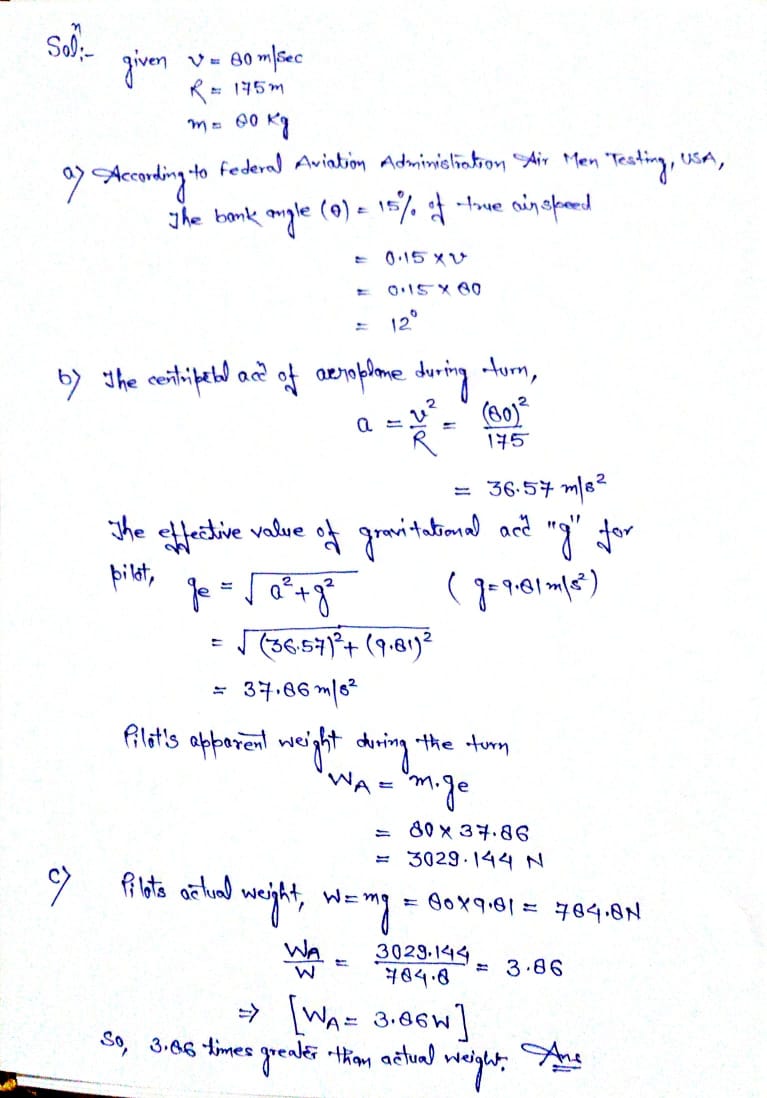 Solⁿ:-
given v = 80 m/sec
R = 175m
m = 80 Kg
a) According to Federal Aviation Administration Air Men Testing, USA,
The bank angle (θ) = 15% of true airspeed
= 0.15 × v
= 0.15 × 80
= 12°
b) The centripetal accⁿ of aeroplane during turn,
a = v²/R = (80)²/175
= 36.57 m/s²
The effective value of gravitational accⁿ "g" for
pilot, ge = √(a²+g²) (g=9.81m/s²)
= √((36.57)²+(9.81)²)
= 37.86 m/s²
Pilot's apparent weight during the turn
WA = m.ge
= 80 × 37.86
= 3029.144 N
c) Pilots actual weight, W=mg = 80×9.81 = 784.8N
WA/W = 3029.144/784.8 = 3.86
⇒ [WA = 3.86W]
So, 3.86 times greater than actual weight. Ans